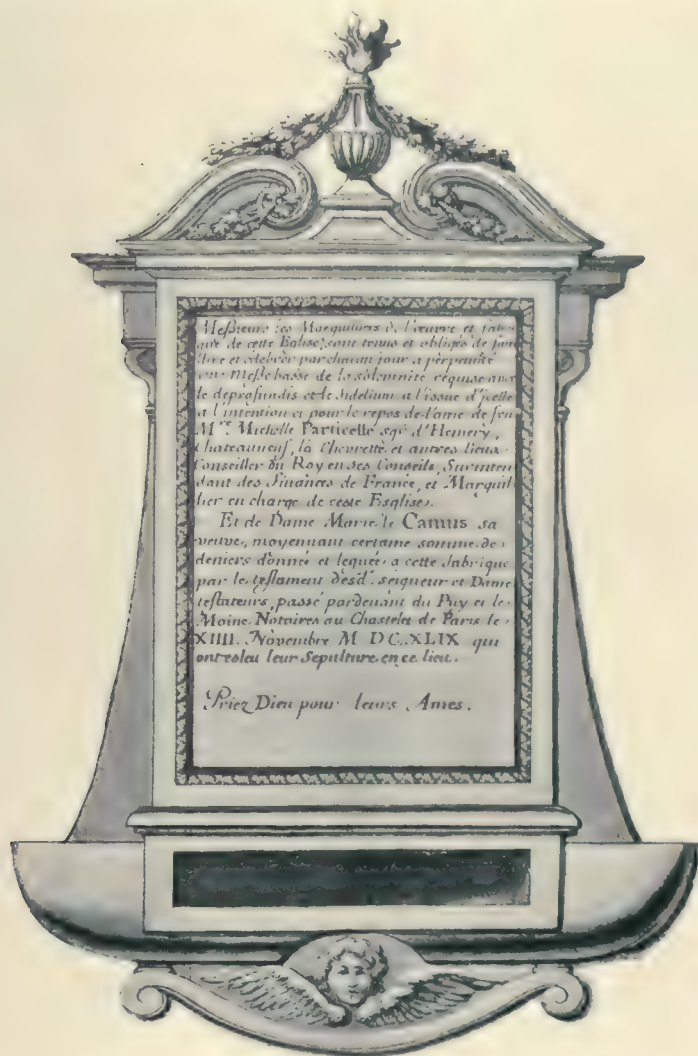 Meßieurs les Marguilliers de l'œuvre et fabri
que de cette Eglise, sont tenus et obligés de faire
dire et celebrer par chacun jour a perpetuité
une Meße basse de la solemnité requise avec
le deprofundis et le fidelium a l'issue d'jcelle
a l'intention et pour le repos de l'ame de feu
M.re Michelle Particelle sgr. d'Hemery,
Chateauneuf, la Chevrette et autres lieux
Conseiller du Roy en ses Conseils, Surinten
dant des Finances de France, et Marguil
lier en charge de ceste Esglise.
Et de Dame Marie le Camus sa
veuve, moyennant certaine somme de
deniers donnée et leguée a cette fabrique
par le testament desd. seigneur et Dame
testateurs, passé pardevant du Puy et le
Moine Notaires au Chastelet de Paris le
XIIII. Novembre M. DC. XLIX qui
ont esleu leur Sepulture en ce lieu.
Priez Dieu pour leurs Ames.